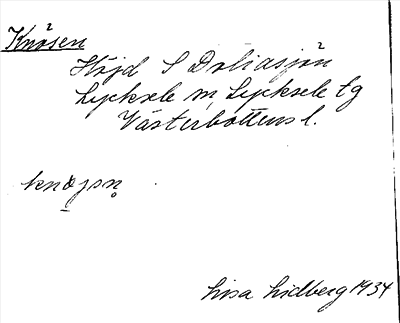 Knösen
Höjd S Doliasjön
Lycksele sn, Lycksele tg
Västerbottens l.
knøjsn̥
Lisa Lidberg 1934